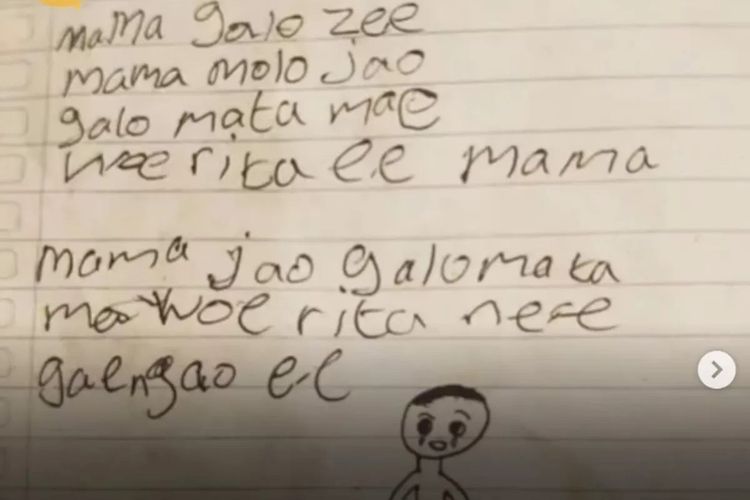 mama galo zee
mama molo jao
galo mata mae
woe rita ee mama
mama jao galomata
woe rita nese
gaengao e-e